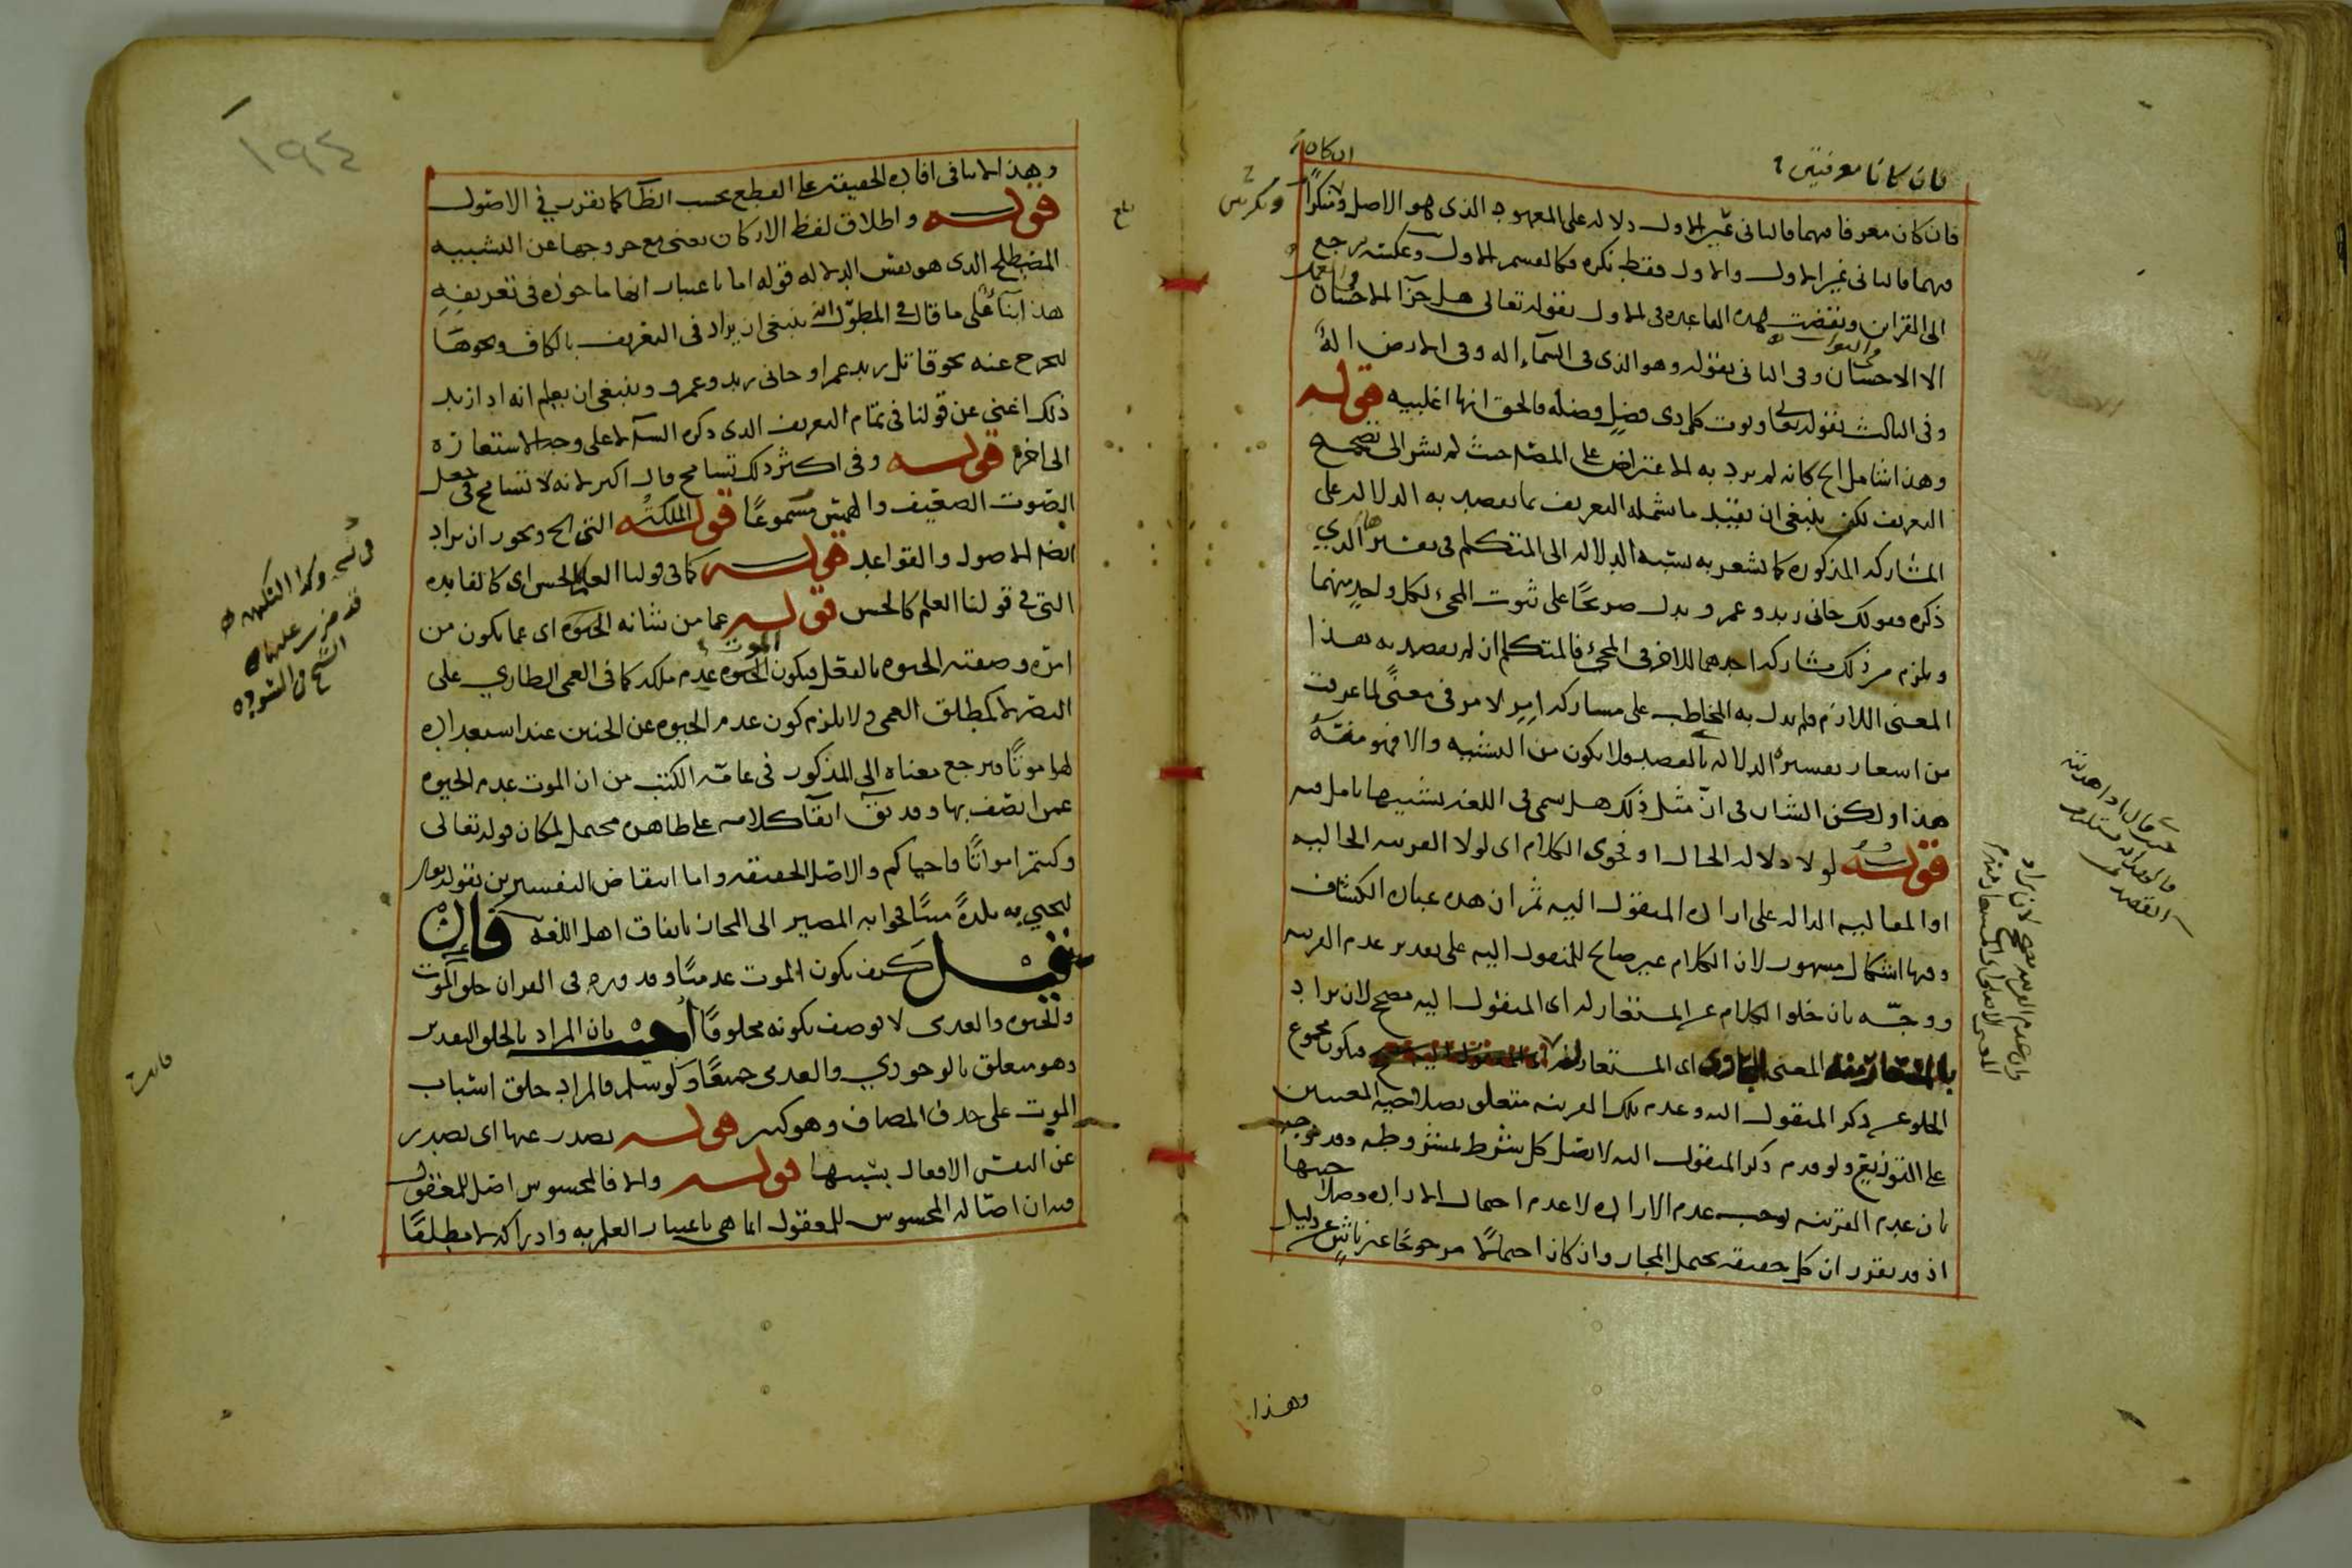 فان كانا معرفتين
فان كان معرفا فهما فالثاني عين الاول دلالة على المعهود الذي هو الاصل ولا منكرا
فهما فالثاني غير الاول والاول فقط نكرة فكالقسم الاول وعكسه يرجع
الى القرائن ونقضت هذه القاعدة في الاول بقوله تعالى هل جزآ الاحسان
الا الاحسان وفي الثاني بقوله وهو الذي في السمآء اله وفي الارض اله
وفي الثالث بقوله تعا ويوت كل ذي فضل فضله فالحق انها اغلبيه قوله
وهذا شامل الخ كانه لم يرد به الاعتراض على المصـ حيث لم يشر الى تصحيح
التعريف لكن ينبغي ان يقيد ما شمله التعريف بما يقصد به الدلالة على
المشاركه المذكوره كما يشعر به نسبة الدلاله الى المتكلم في تفسيرها الذي
ذكره فقولك جاني زيد وعمرو يدل صريحا على ثبوت المجي لكل واحد منهما
ويلزم من ذلك مشاركه احدهما للاخر في المجي فالمتكلم ان لم يقصد به هذا
المعنى اللازم فلم يدل به المخاطب على مشاركه امر لامر في معنى لما عرفت
من اشعار تفسيره الدلاله بالقصد ولا يكون من التشبيه والا فهو منه
هذا ولكن الشان في ان مثل ذلك هل سمي في اللغة تشبيها تامل فيه
قوله لولا دلاله الحال او فحوى الكلام اى لولا القرينه الحاليه
او المقاليه الداله على ارادة المنقول اليه ثم ان هذه عبارة الكشاف
وفيها اشكال مشهور لان الكلام غير صالح للمنقول اليه على تقدير عدم القرينه
ووجه بان خلو الكلام عن المستعار له اى المنقول اليه مصحح لان يراد
المعنى اى المستعار فيكون مجموع
الخلو عن ذكر المنقول اليه وعدم تلك القرينه متعلق بصلاحية المعنيين
على التوزيع ولو قدم ذكر المنقول اليه لاتصل كل شرط بمشروطه وقد توجه
بان عدم القرينه يوجب عدم الارادة لا عدم احتمال الارادة وصلاحيتها
اذ قد تقرر ان كل حقيقه يحتمل المجاز وان كان احتمالا مرجوحا غير ناش عن دليل
وهذا
١٩٤
وهذا لا ينافى افادة الحقيقة على القطع بحسب الظا كما تقرر في الاصول
قوله واطلاق لفظ الاركان يعني مع خروجها عن التشبيه
المصطلح الذى هو نفس الدلاله قوله اما باعتبار انها ماخوذه في تعريفه
هذا بنآ على ما قال في المطول انه ينبغي ان يزاد في التعريف بالكاف ونحوها
ليخرج عنه نحو قاتل زيد عمرا وجاني زيد وعمرو وينبغي ان يعلم انه اذا زيد
ذلك اغنى عن قولنا في تمام التعريف الذى ذكره السآ لا على وجه الاستعارة
الى اخره قوله وفى اكثر ذلك تسامح قال اكثر لانه لا تسامح في جعل
الصوت الضعيف والهمس مسموعا قوله الملكة التي الخ ويجوز ان يراد
ايضا الاصول والقواعد قوله كما في قولنا العلم كالحس اى كالفايده
التي في قولنا العلم كالحس قوله عما من شانه الحيوه اى عما يكون من
امره وصفته الحيوه بالفعل فيكون الموت عدم ملكه كما في العمى الطاري على
البصر لا كمطلق العمى ولا يلزم كون عدم الحيوه عن الجنين عند استعداده
لها موتا فيرجع معناه الى المذكور في عامه الكتب من ان الموت عدم الحيوه
عمن اتصف بها وقد يقا ابقآ كلامه على ظاهره محتمل لمكان قوله تعالى
وكنتم امواتا فاحياكم والاصل الحقيقه واما انتقاض التفسيرين بقوله تعا
لنحيي به بلدة ميتا فجوابه المصير الى المجاز باتفاق اهل اللغه فان
قيل كيف يكون الموت عدميا وقد قرره في القران خلق الموت
والحيوه والعدمى لا يوصف بكونه مخلوقا اجيب بان المراد بالخلق التقدير
وهو متعلق بالوجودي والعدمى جميعا ولو سلم فالمراد خلق اسباب
الموت على حذف المضاف وهو كثير قوله يصدر عنها اى يصدر
عن النفس الافعال بسببها قوله والا فالمحسوس اصل للمعقول
فيه ان اصاله المحسوس للمعقول انما هي باعتبار العلم به وادراكه لا مطلقا